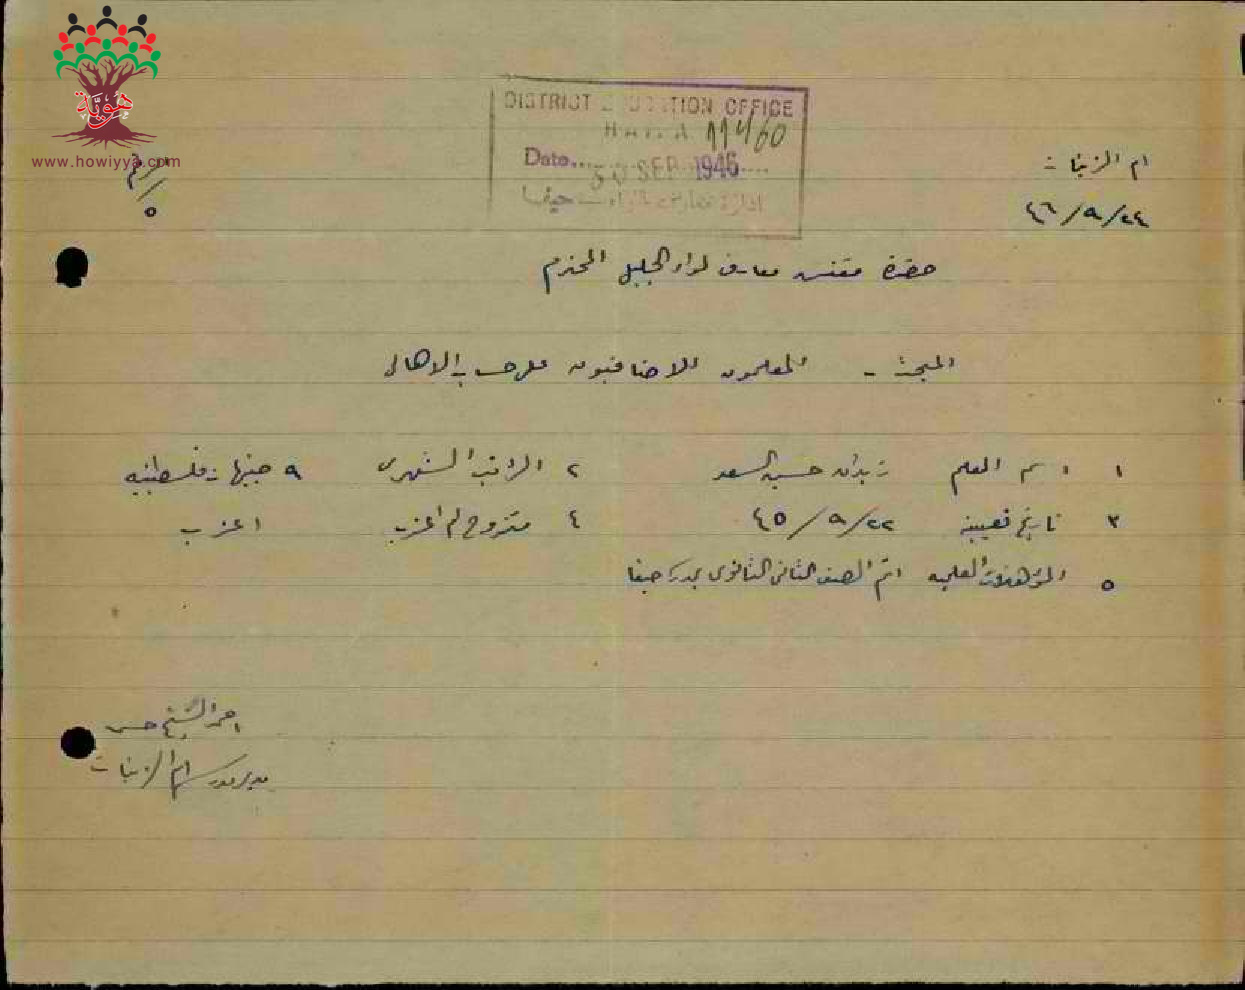 هوية
www.howiyya.com
DISTRICT EDUCATION OFFICE
HAIFA 11460
Date.... 30 SEP 1946 ....
ادارة معارف لواء حيفا
ام الزينات
٢٤/٩/٤٦
٥
حضرة مفتش معارف لواء الجليل المحترم
المبحث - المعلمون الاضافيون على حساب الاهالي
١ اسم المعلم زيدان حسين السعد ٢ الراتب الشهري ٩ جنيهات فلسطينيه
٣ تاريخ تعيينه ٢٢/٩/٤٥ ٤ متزوج ام اعزب اعزب
٥ المؤهلات العلميه اتم الصف الثاني الثانوي بمدرسة حيفا
احمد الشيخ حسن
مدير مدرسة ام الزينات